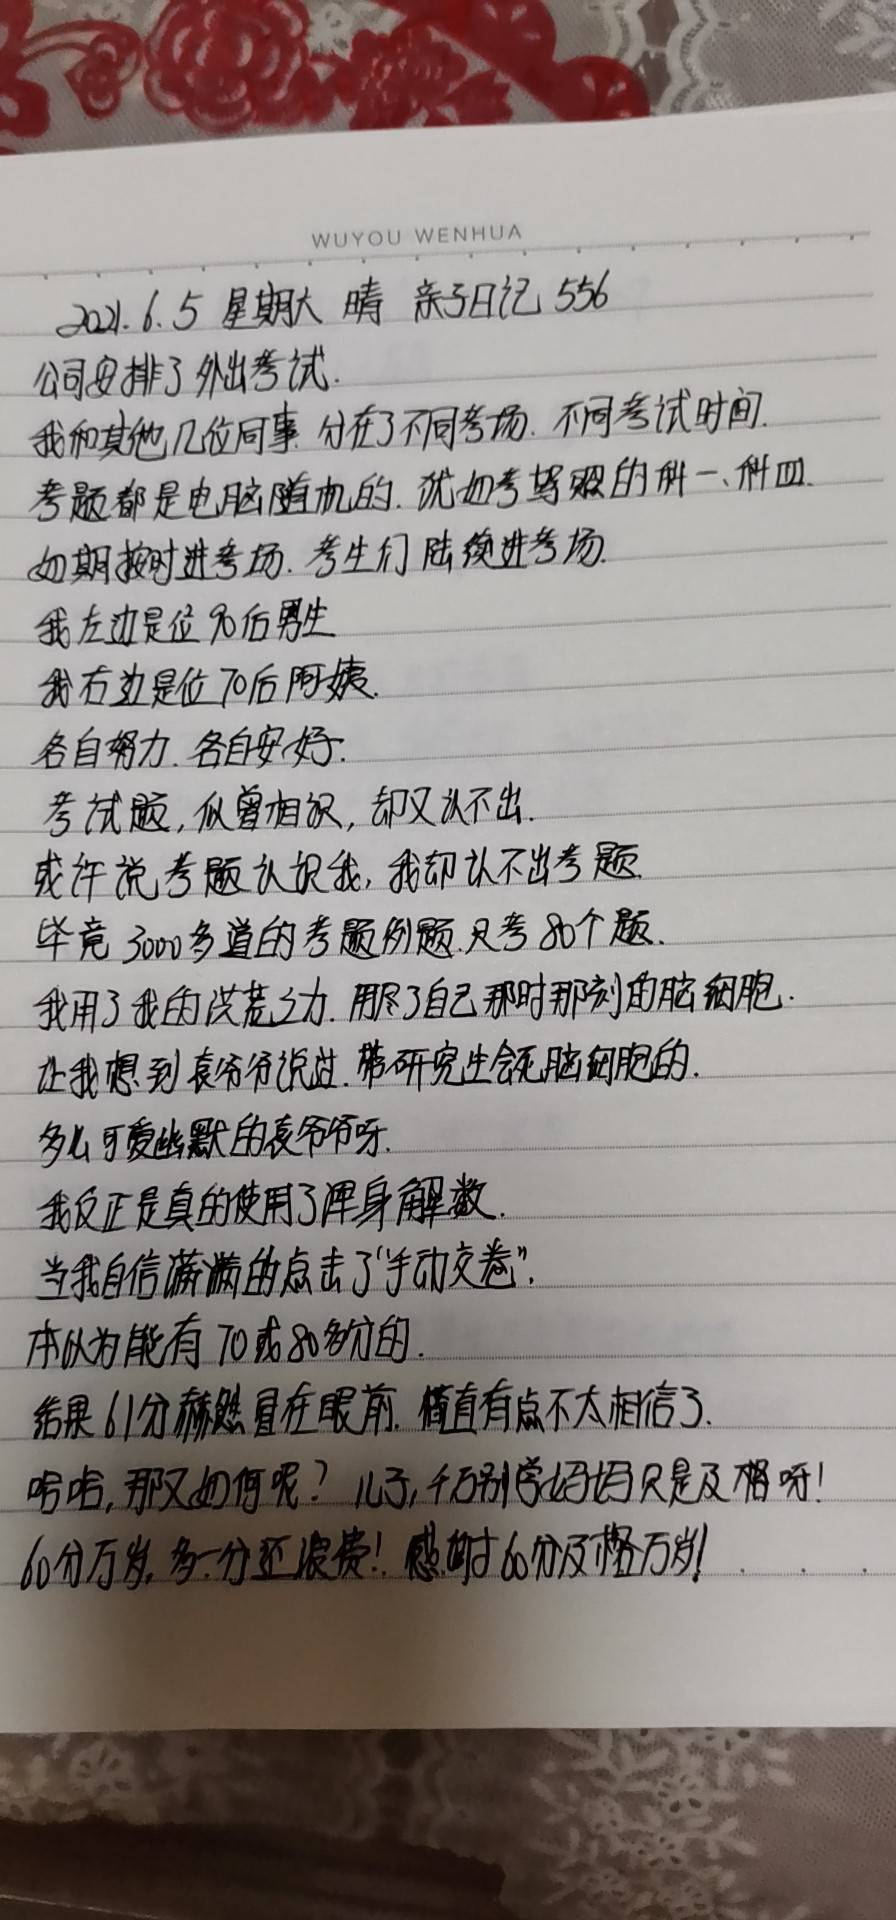 WUYOU WENHUA
2021.6.5 星期六 晴 亲子日记 556
公司安排了外出考试.
我和其他几位同事 分在了不同考场. 不同考试时间.
考题都是电脑随机的. 犹如考驾照的科一、科四.
如期按时进考场. 考生们陆续进考场.
我左边是位90后男生
我右边是位70后阿姨.
各自努力. 各自安好.
考试题, 似曾相识, 却又认不出.
或许说考题认识我, 我却认不出考题.
毕竟3000多道的考题例题.只考80个题.
我用了我的洪荒之力. 用尽了自己那时那刻的脑细胞.
让我想到袁爷爷说过. 带研究生会死脑细胞的.
多么可爱幽默的袁爷爷呀.
我反正是真的使用了浑身解数.
当我自信满满的点击了“手动交卷”.
本以为能有70或80多分的.
结果61分赫然冒在眼前. 简直有点不太相信了.
哈哈, 那又如何呢? 儿子, 千万别学妈妈只是及格呀!
60分万岁, 多一分还浪费! 60分及格万岁!